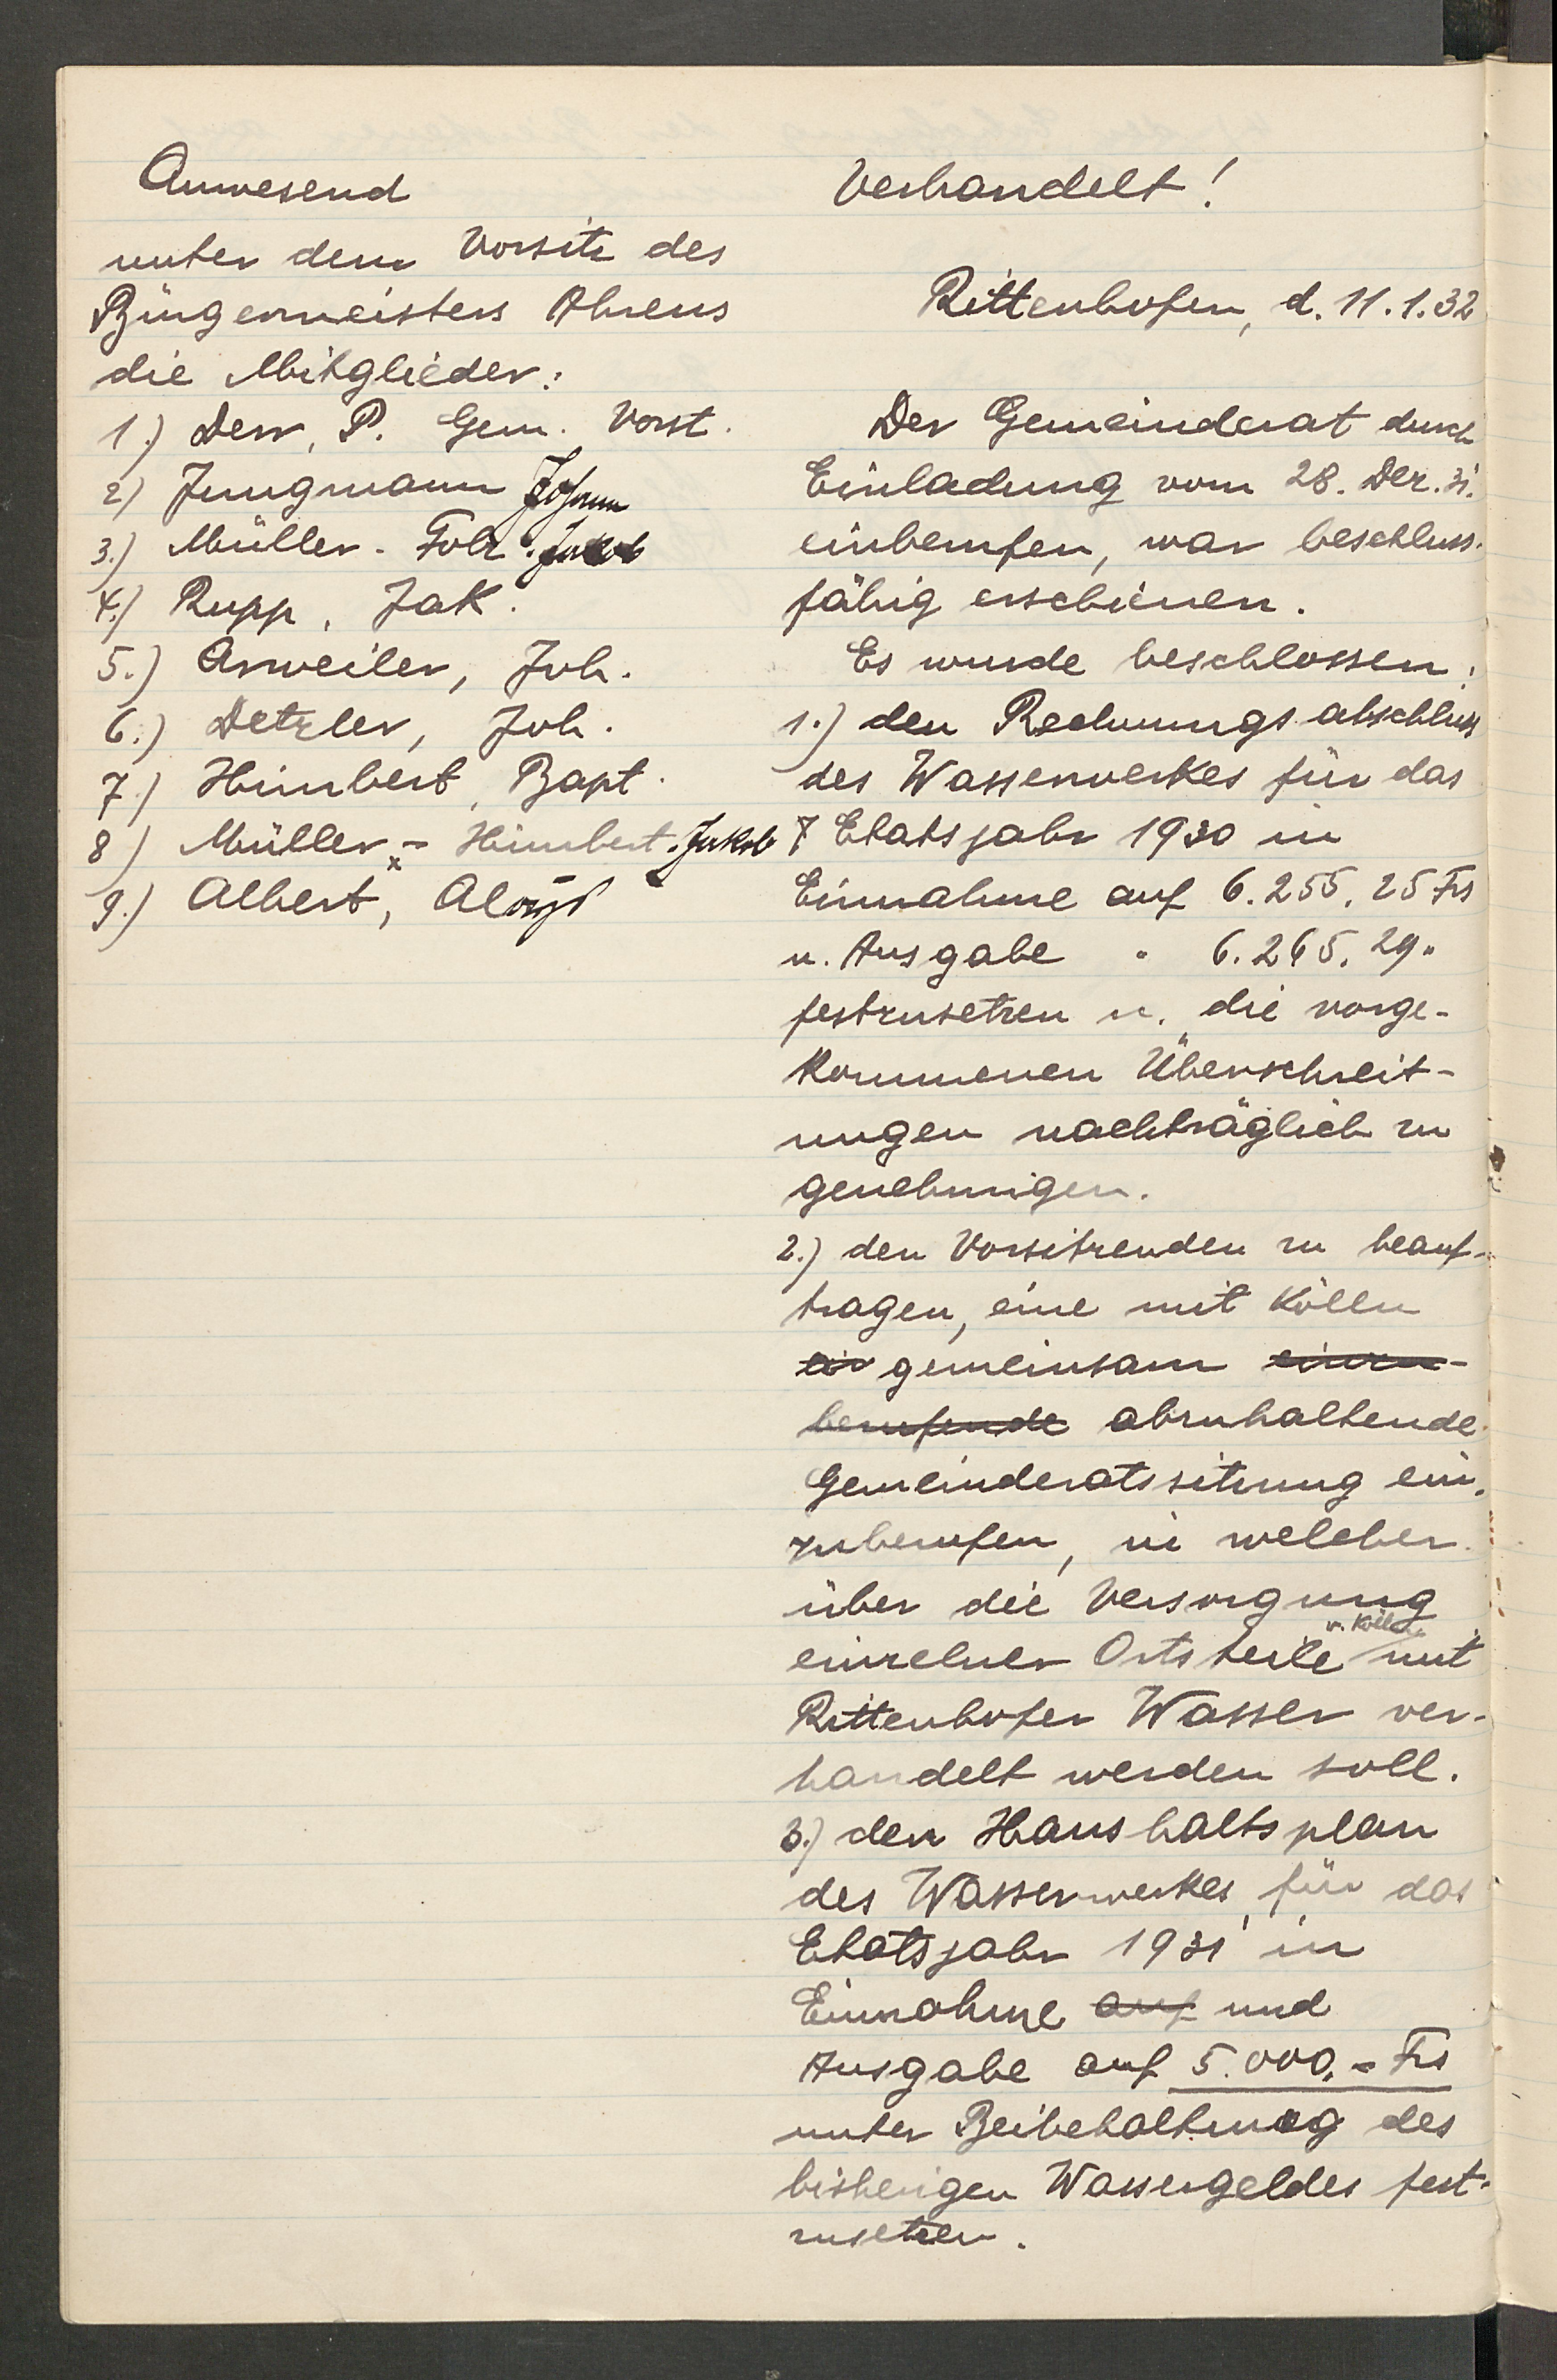 Anwesend
unter dem Vorsitz des
Bürgermeisters Ahrens
die Mitglieder:
1.) Derr, P. Gem. Vorst.
2) Jungmann Johann
3.) Müller - Folz. Jakob
4.) Rupp, Jak.
5.) Arweiler, Joh.
6.) Detzler, Joh.
7.) Himbert, Bapt.
8) Müller - Himbert. Jakob
9.) Albert, Aloys
Verhandelt!
Rittenhofen, d. 11.1.32
Der Gemeinderat durch
Einladung vom 28. Dez. 31.
einberufen, war beschluss-
fähig erschienen.
Es wurde beschlossen:
1.) den Rechnungsabschluss
des Wasserwerkes für das
Etatsjahr 1930 in
Einnahme auf 6.255,25 Frs
u. Ausgabe " 6.265,29 "
festzusetzen u. die vorge-
kommenen Überschreit-
ungen nachträglich zu
genehmigen.
2.) den Vorsitzenden zu beauf-
tragen, eine mit Kölln
ein gemeinsam einzu-
berufende abzuhaltende
Gemeinderatssitzung ein-
zuberufen, in welcher
über die Versorgung
einzelner Ortsteile v. Kölln mit
Rittenhofer Wasser ver-
handelt werden soll.
3.) den Haushaltsplan
des Wasserwerkes, für das
Etatsjahr 1931 in
Einnahme auf und
Ausgabe auf 5.000,- Frs
unter Beibehaltung des
bisherigen Wassergeldes fest-
zusetzen.